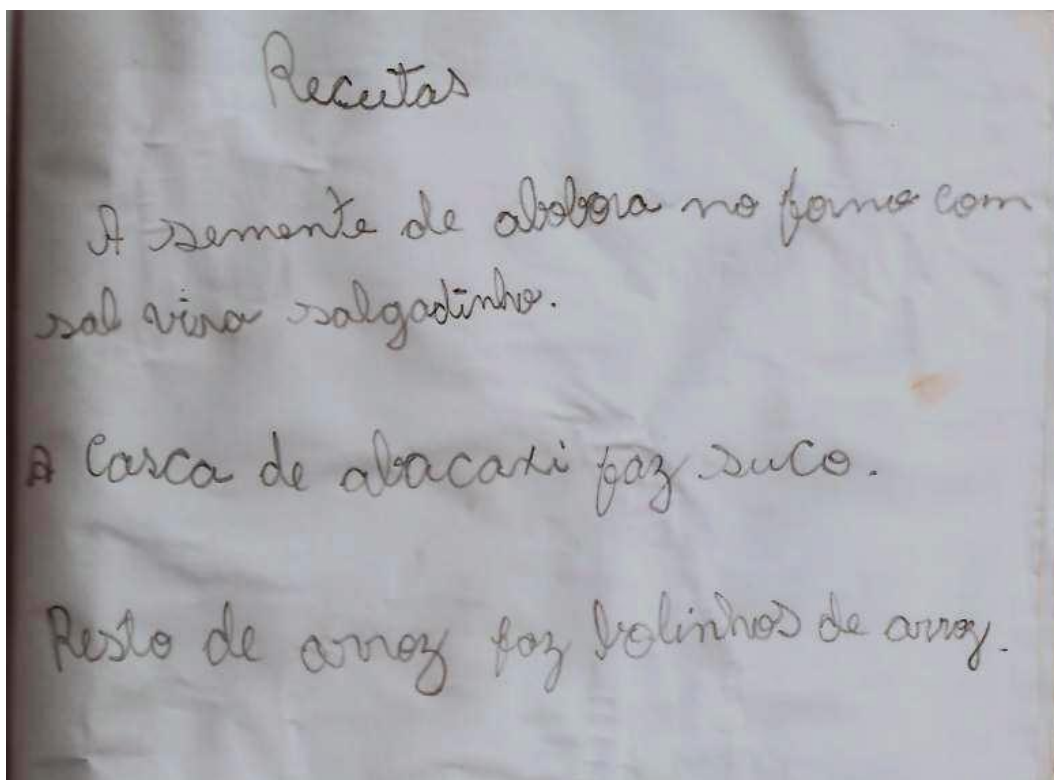 Receitas
A semente de abobora no forno com
sal vira salgadinho.
A Casca de abacaxi faz suco.
Resto de arroz faz bolinhos de arroz.